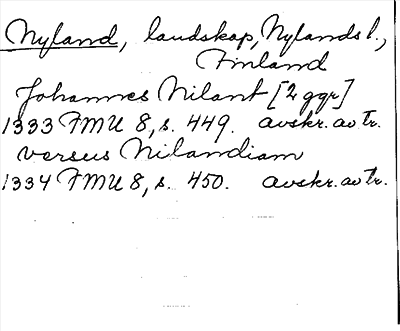 Nyland, landskap, Nylands l.,
Finland
Johannes Nilant [2 ggr]
1333 FMU 8, s. 449. avskr. av tr.
versus Nilandiam
1334 FMU 8, s. 450. avskr. av tr.